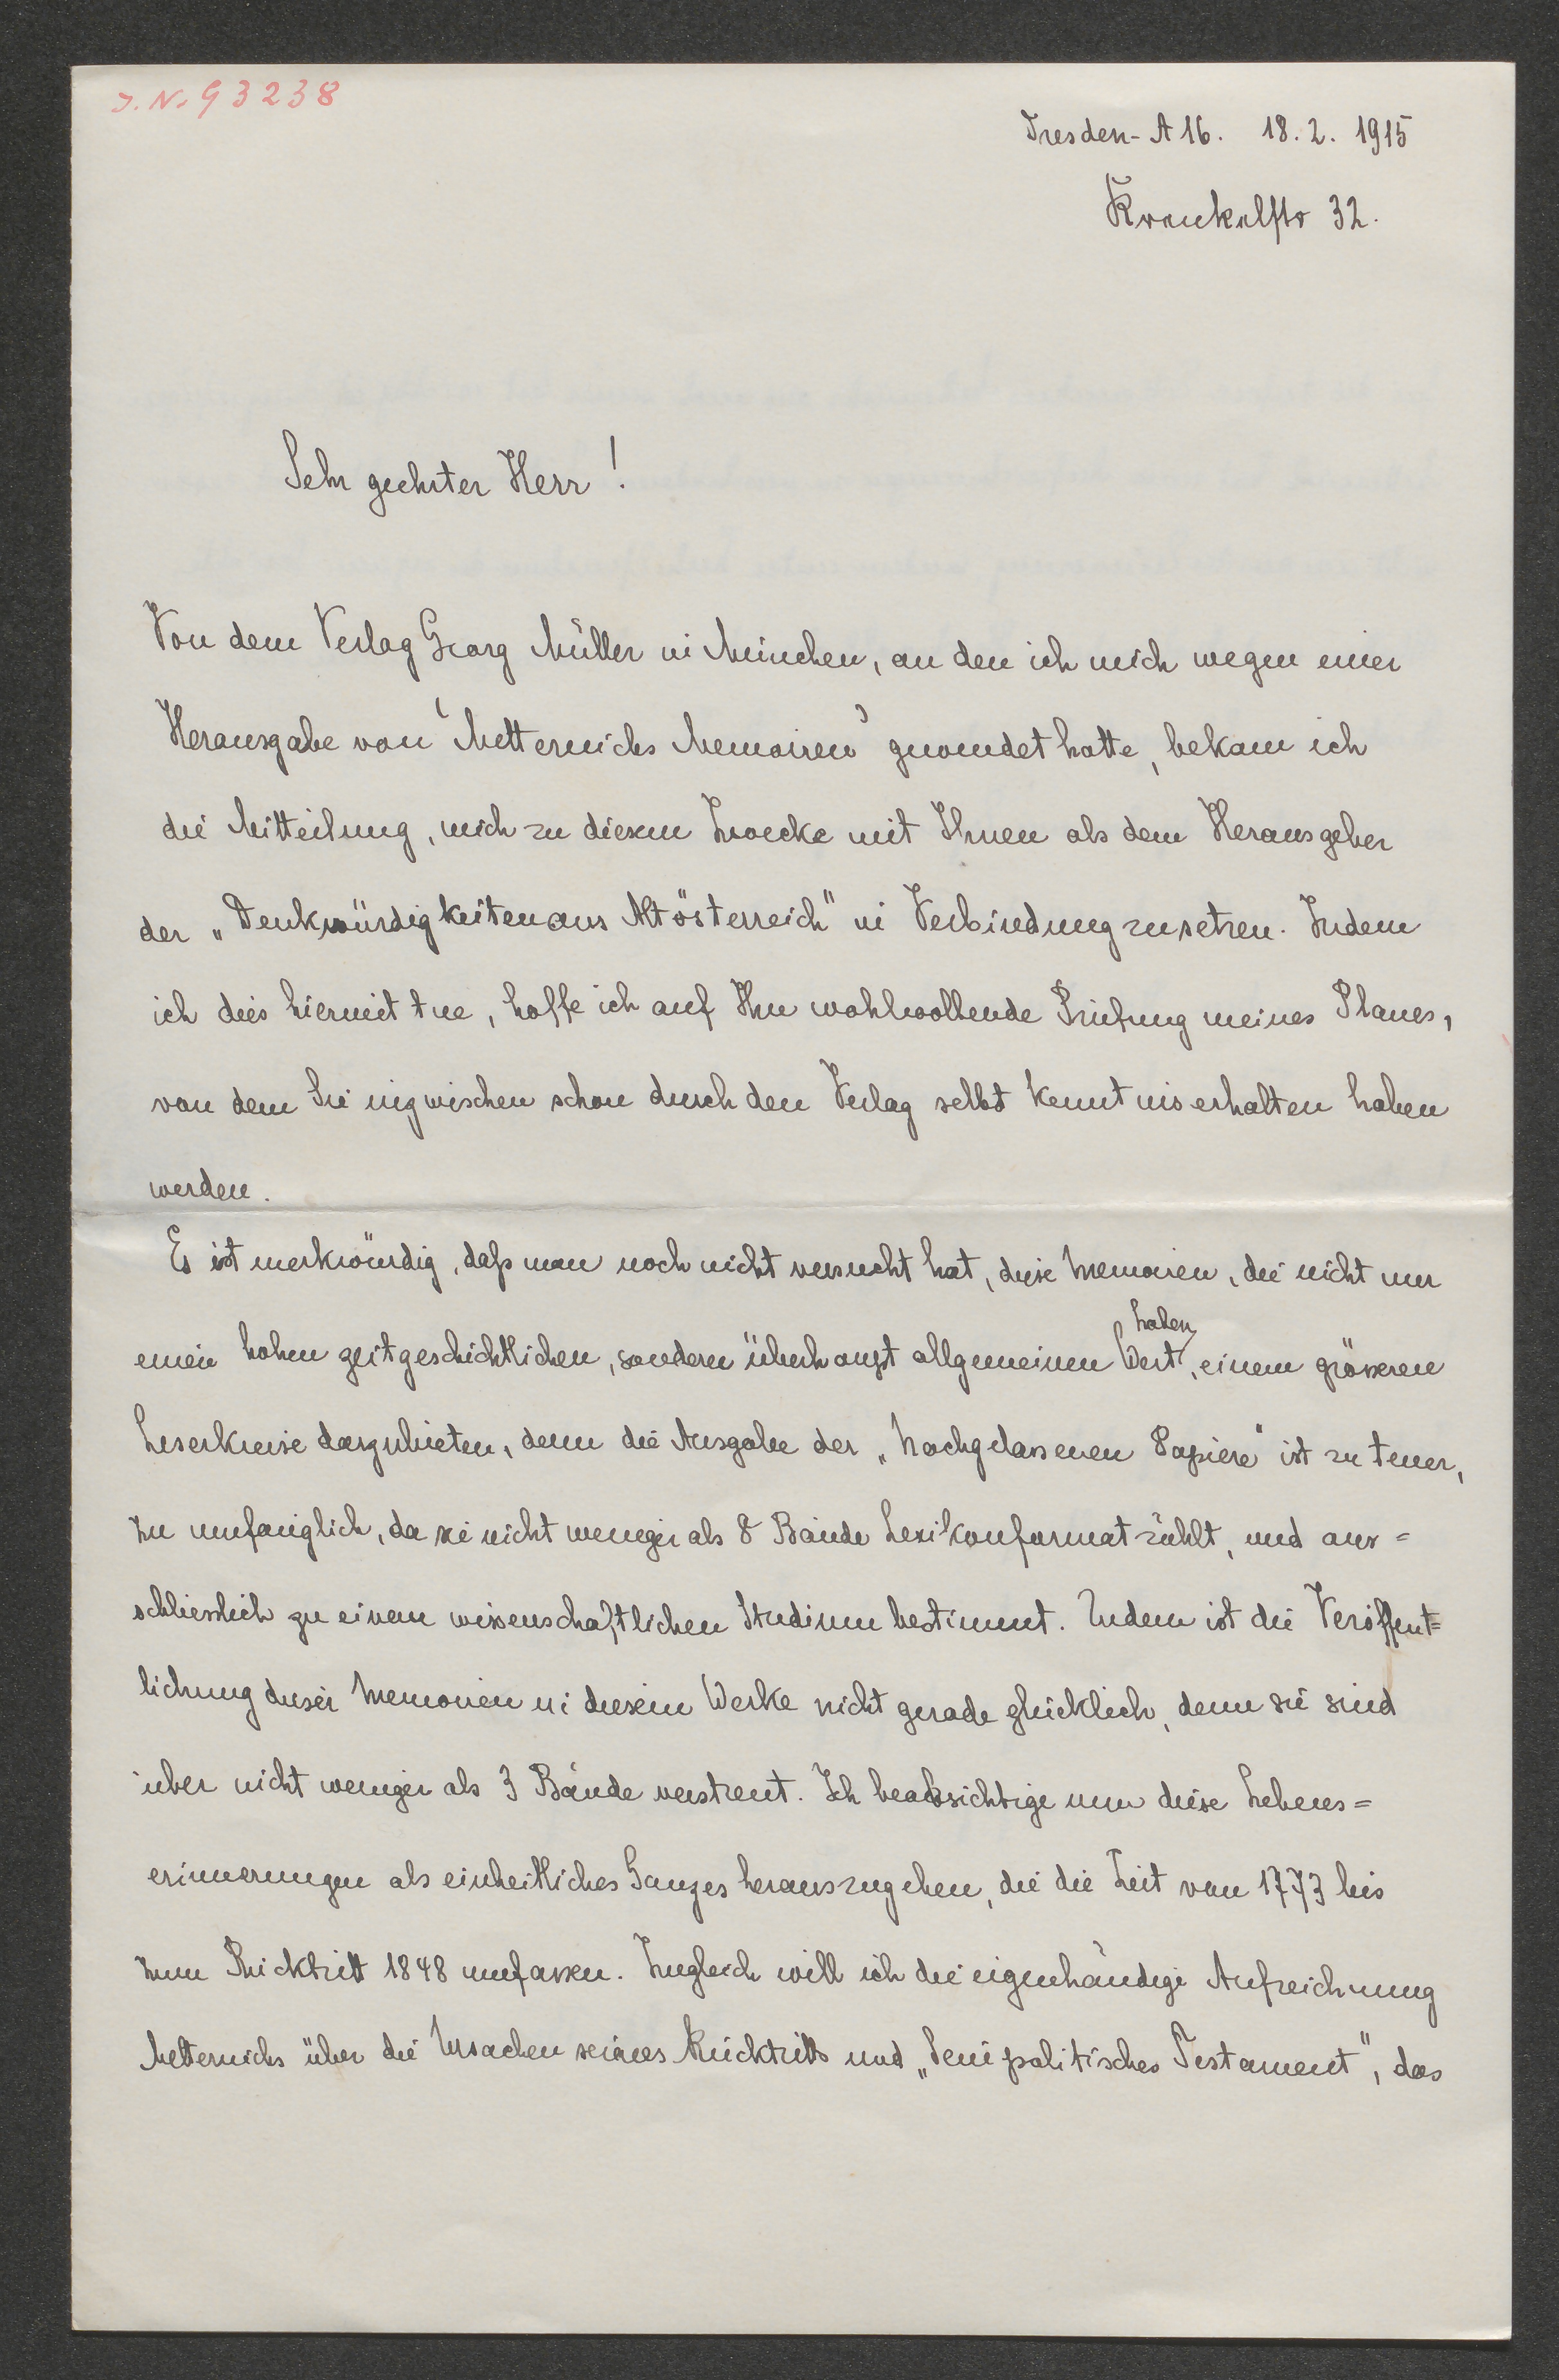 J. N. 93238
Dresden-A 16. 18. 2. 1915
Krenkelstr 32.
Sehr geehrter Herr!
Von dem Verlag Georg Müller in München, an den ich mich wegen einer
Herausgabe von 'Metternichs Memoiren' gewendet hatte, bekam ich
die Mitteilung, mich zu diesem Zwecke mit Ihnen als dem Herausgeber
der „Denkwürdigkeiten aus Altösterreich" in Verbindung zu setzen. Indem
ich dies hiermit tue, hoffe ich auf Ihre wohlwollende Prüfung meines Planes,
von dem Sie inzwischen schon durch den Verlag selbst Kenntnis erhalten haben
werden.
Es ist merkwürdig, daß man noch nicht versucht hat, diese Memoiren, die nicht nur
einen hohen zeitgeschichtlichen, sondern überhaupt allgemeinen Wert haben, einem grösseren
Leserkreise darzubieten, denn die Ausgabe der „Nachgelassenen Papiere" ist zu teuer,
zu umfänglich, da sie nicht weniger als 8 Bände Lexikonformat zählt, und aus=
schliesslich zu einem wissenschaftlichen Studium bestimmt. Zudem ist die Veröffent=
lichung dieser Memoiren in diesem Werke nicht gerade glücklich, denn sie sind
über nicht weniger als 3 Bände verstreut. Ich beabsichtige nun diese Lebens=
erinnerungen als einheitliches Ganzes herauszugeben, die die Zeit von 1773 bis
zum Rücktritt 1848 umfassen. Zugleich will ich die eigenhändige Aufzeichnung
Metternichs über die Ursachen seines Rücktritts und „Sein politisches Testament", das